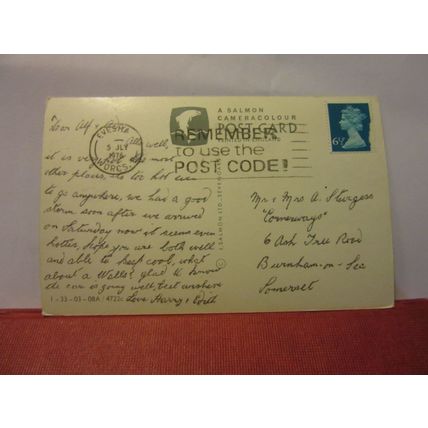 A SALMON
CAMERACOLOUR
POST CARD
REMEMBER
to use the
POST CODE!
EVESHA
5 JLY
1976
WORCS.
6½P
Dear Alf &
All well,
it is very hot most
other places, its too hot even
to go anywhere, we had a good
storm soon after we arrived
on Saturday now it seems even
hotter, Hope you are both well
and able to keep cool, what
about a Walls? glad to know
de car is going well, best wishes
Love Harry & Edith
1 - 33 - 03 - 08A / 4722c
J SALMON LTD., SEVENOAKS
Mr & Mrs A. Sturgess
"Cornerways"
6 Ash Tree Road
Burnham-on-Sea
Somerset